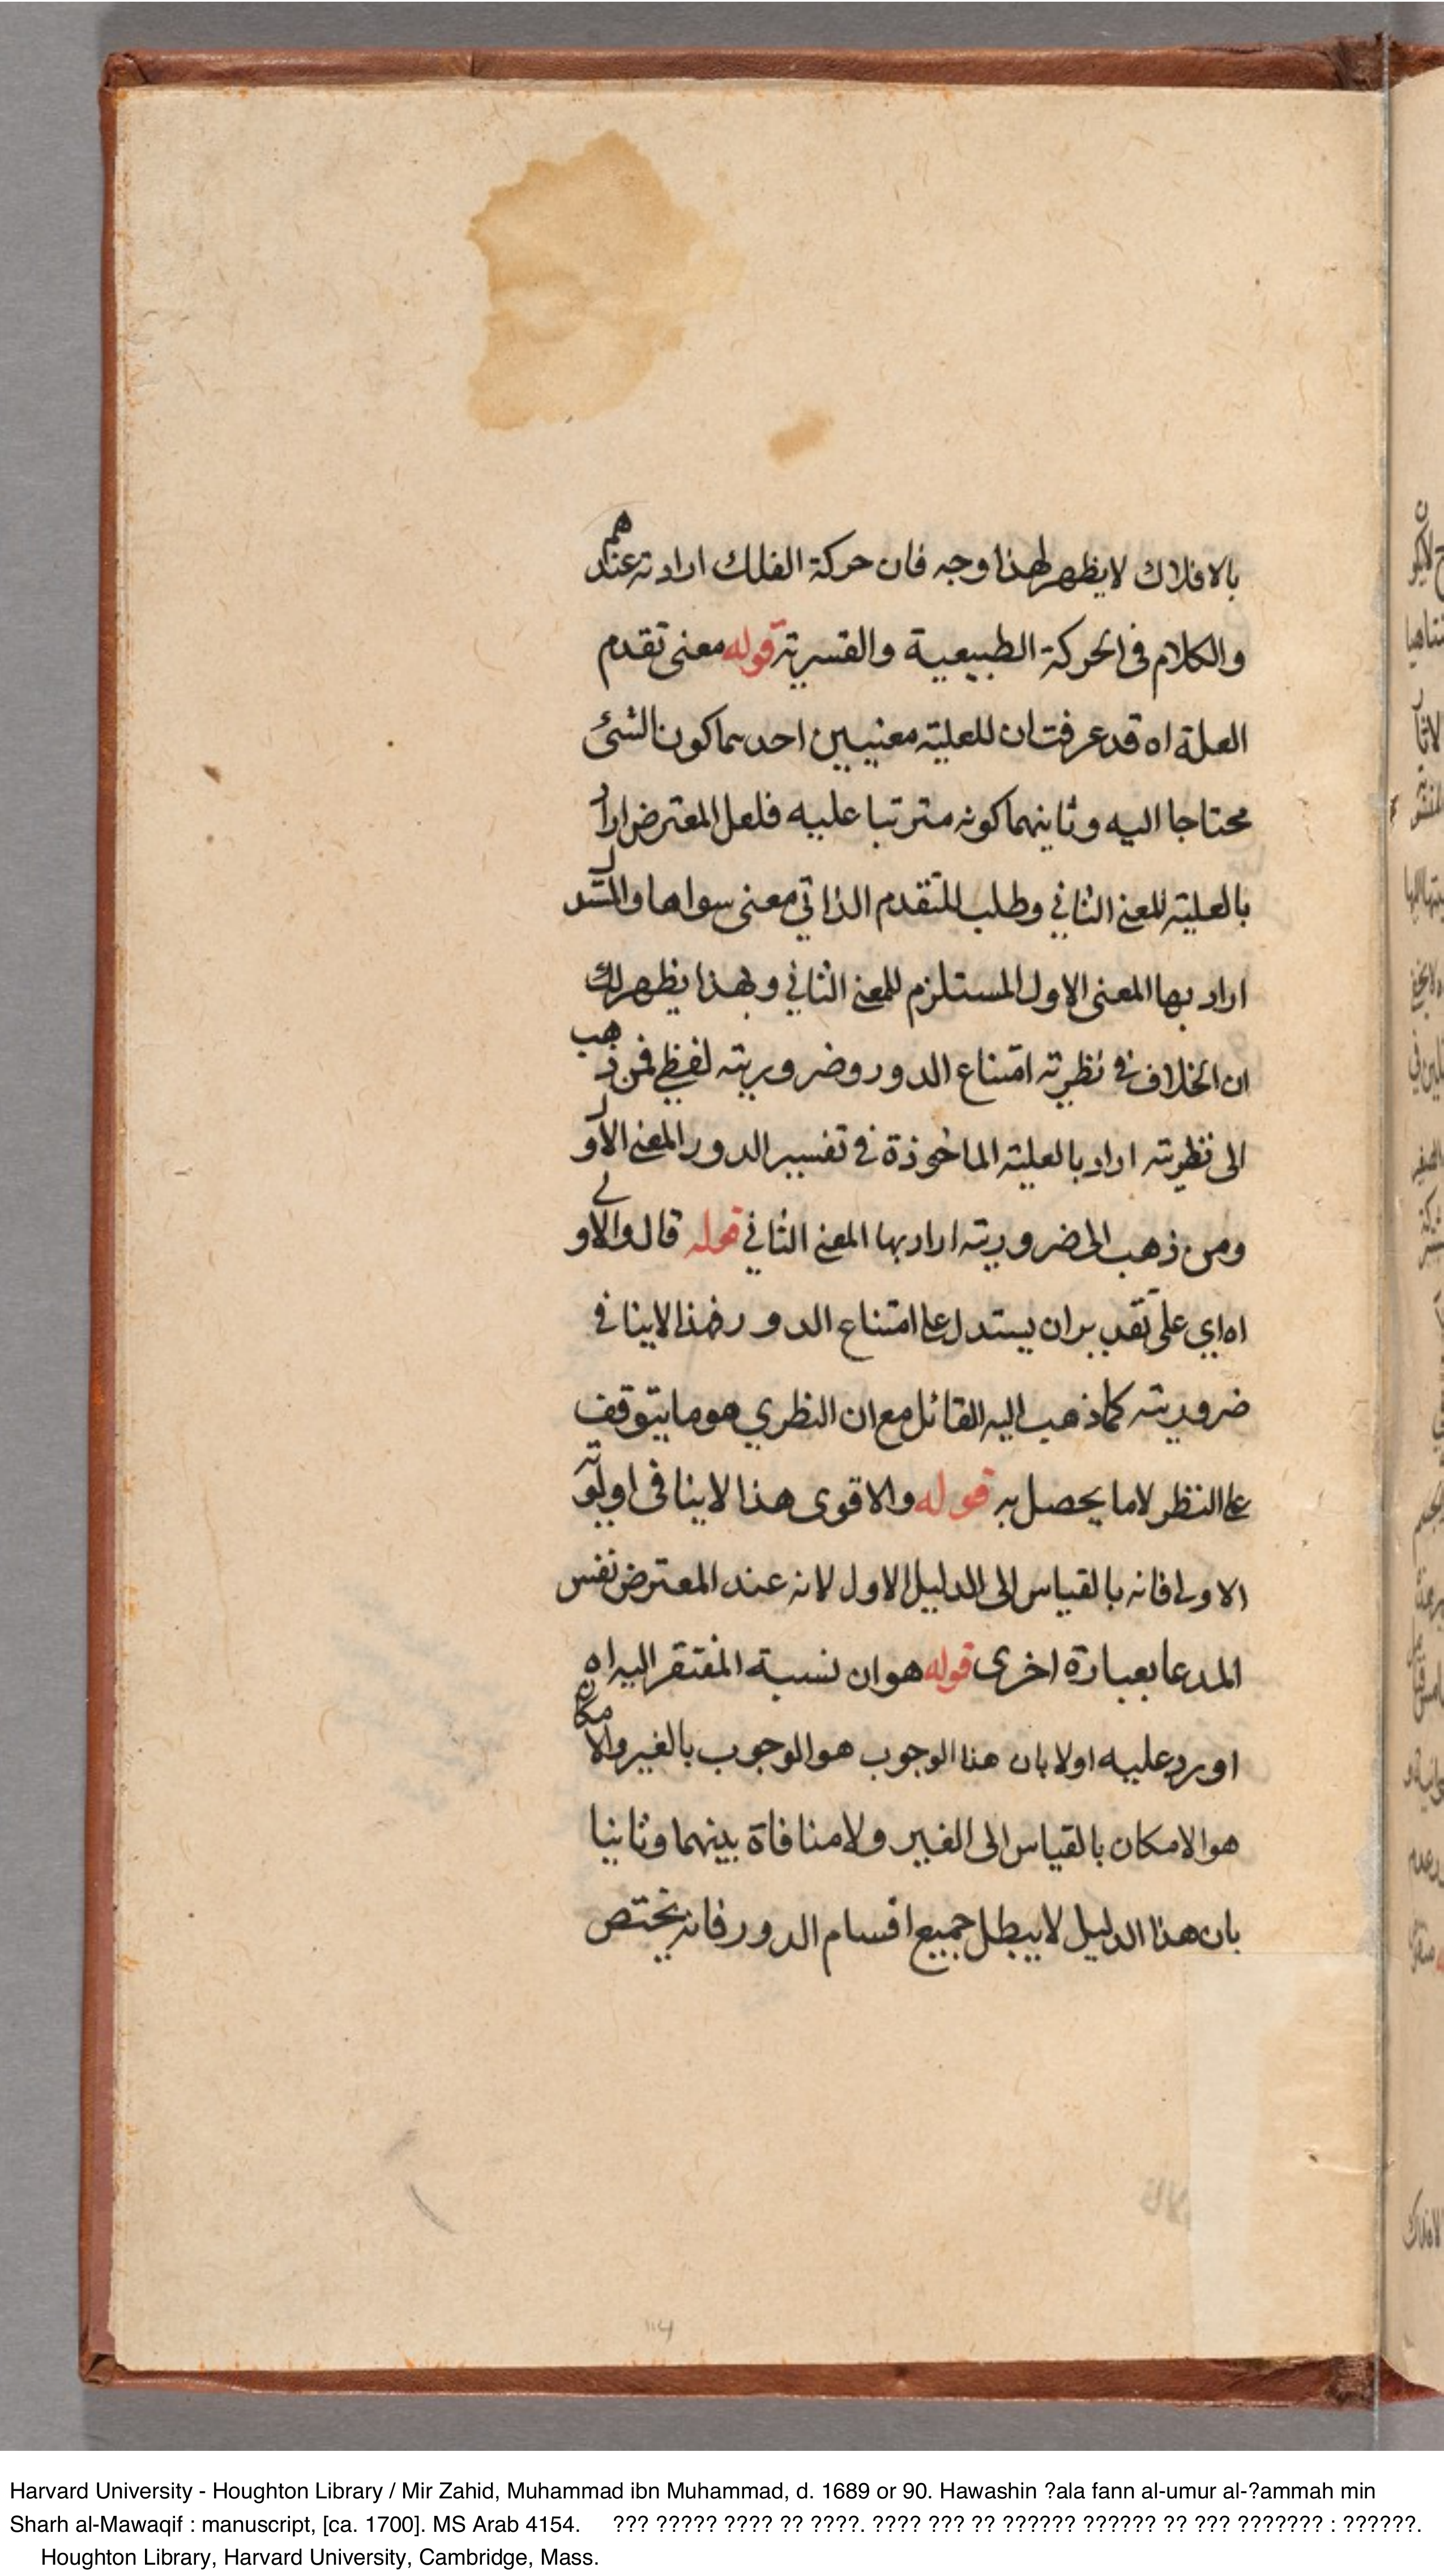 بالافلاك لا يظهر لهذا وجه فان حركة الفلك ارادية عندهم
والكلام فى الحركة الطبيعية والقسرية قوله معنى تقدم
العلة اه قد عرفت ان للعلية معنيين احدهما كون الشئ
محتاجا اليه وثانيهما كونه مترتبا عليه فلعل المعترض اراد
بالعلية المعنى الثاني وطلب للتقدم الذاتي معنى سواها والمستدل
اراد بها المعنى الاول المستلزم للمعنى الثاني وبهذا يظهر لك
ان الخلاف في نظرية امتناع الدور وضروريته لفظي فمن ذهب
الى نظريته اراد بالعلية الماخوذة في تفسير الدور المعنى الاول
ومن ذهب الى ضروريته اراد بها المعنى الثاني قوله قال والاولى
اه اي على تقدير ان يستدل على امتناع الدور فهذا لا ينافي
ضروريته كما ذهب اليه القائل مع ان النظري هو ما يتوقف
على النظر لا ما يحصل به قوله والاقوى هذا لا ينافى اولوية
الاولى فانه بالقياس الى الدليل الاول لانه عند المعترض نفس
المدعا بعبارة اخرى قوله هو ان نسبة المفتقر اليه اه
اورد عليه اولا بان هذا الوجوب هو الوجوب بالغير والامكان
هو الامكان بالقياس الى الغير ولا منافاة بينهما وثانيا
بان هذا الدليل لا يبطل جميع اقسام الدور فانه يختص
114
Harvard University - Houghton Library / Mir Zahid, Muhammad ibn Muhammad, d. 1689 or 90. Hawashin ?ala fann al-umur al-?ammah min
Sharh al-Mawaqif : manuscript, [ca. 1700]. MS Arab 4154. ??? ????? ???? ?? ????. ???? ??? ?? ?????? ?????? ?? ??? ??????? : ??????.
Houghton Library, Harvard University, Cambridge, Mass.